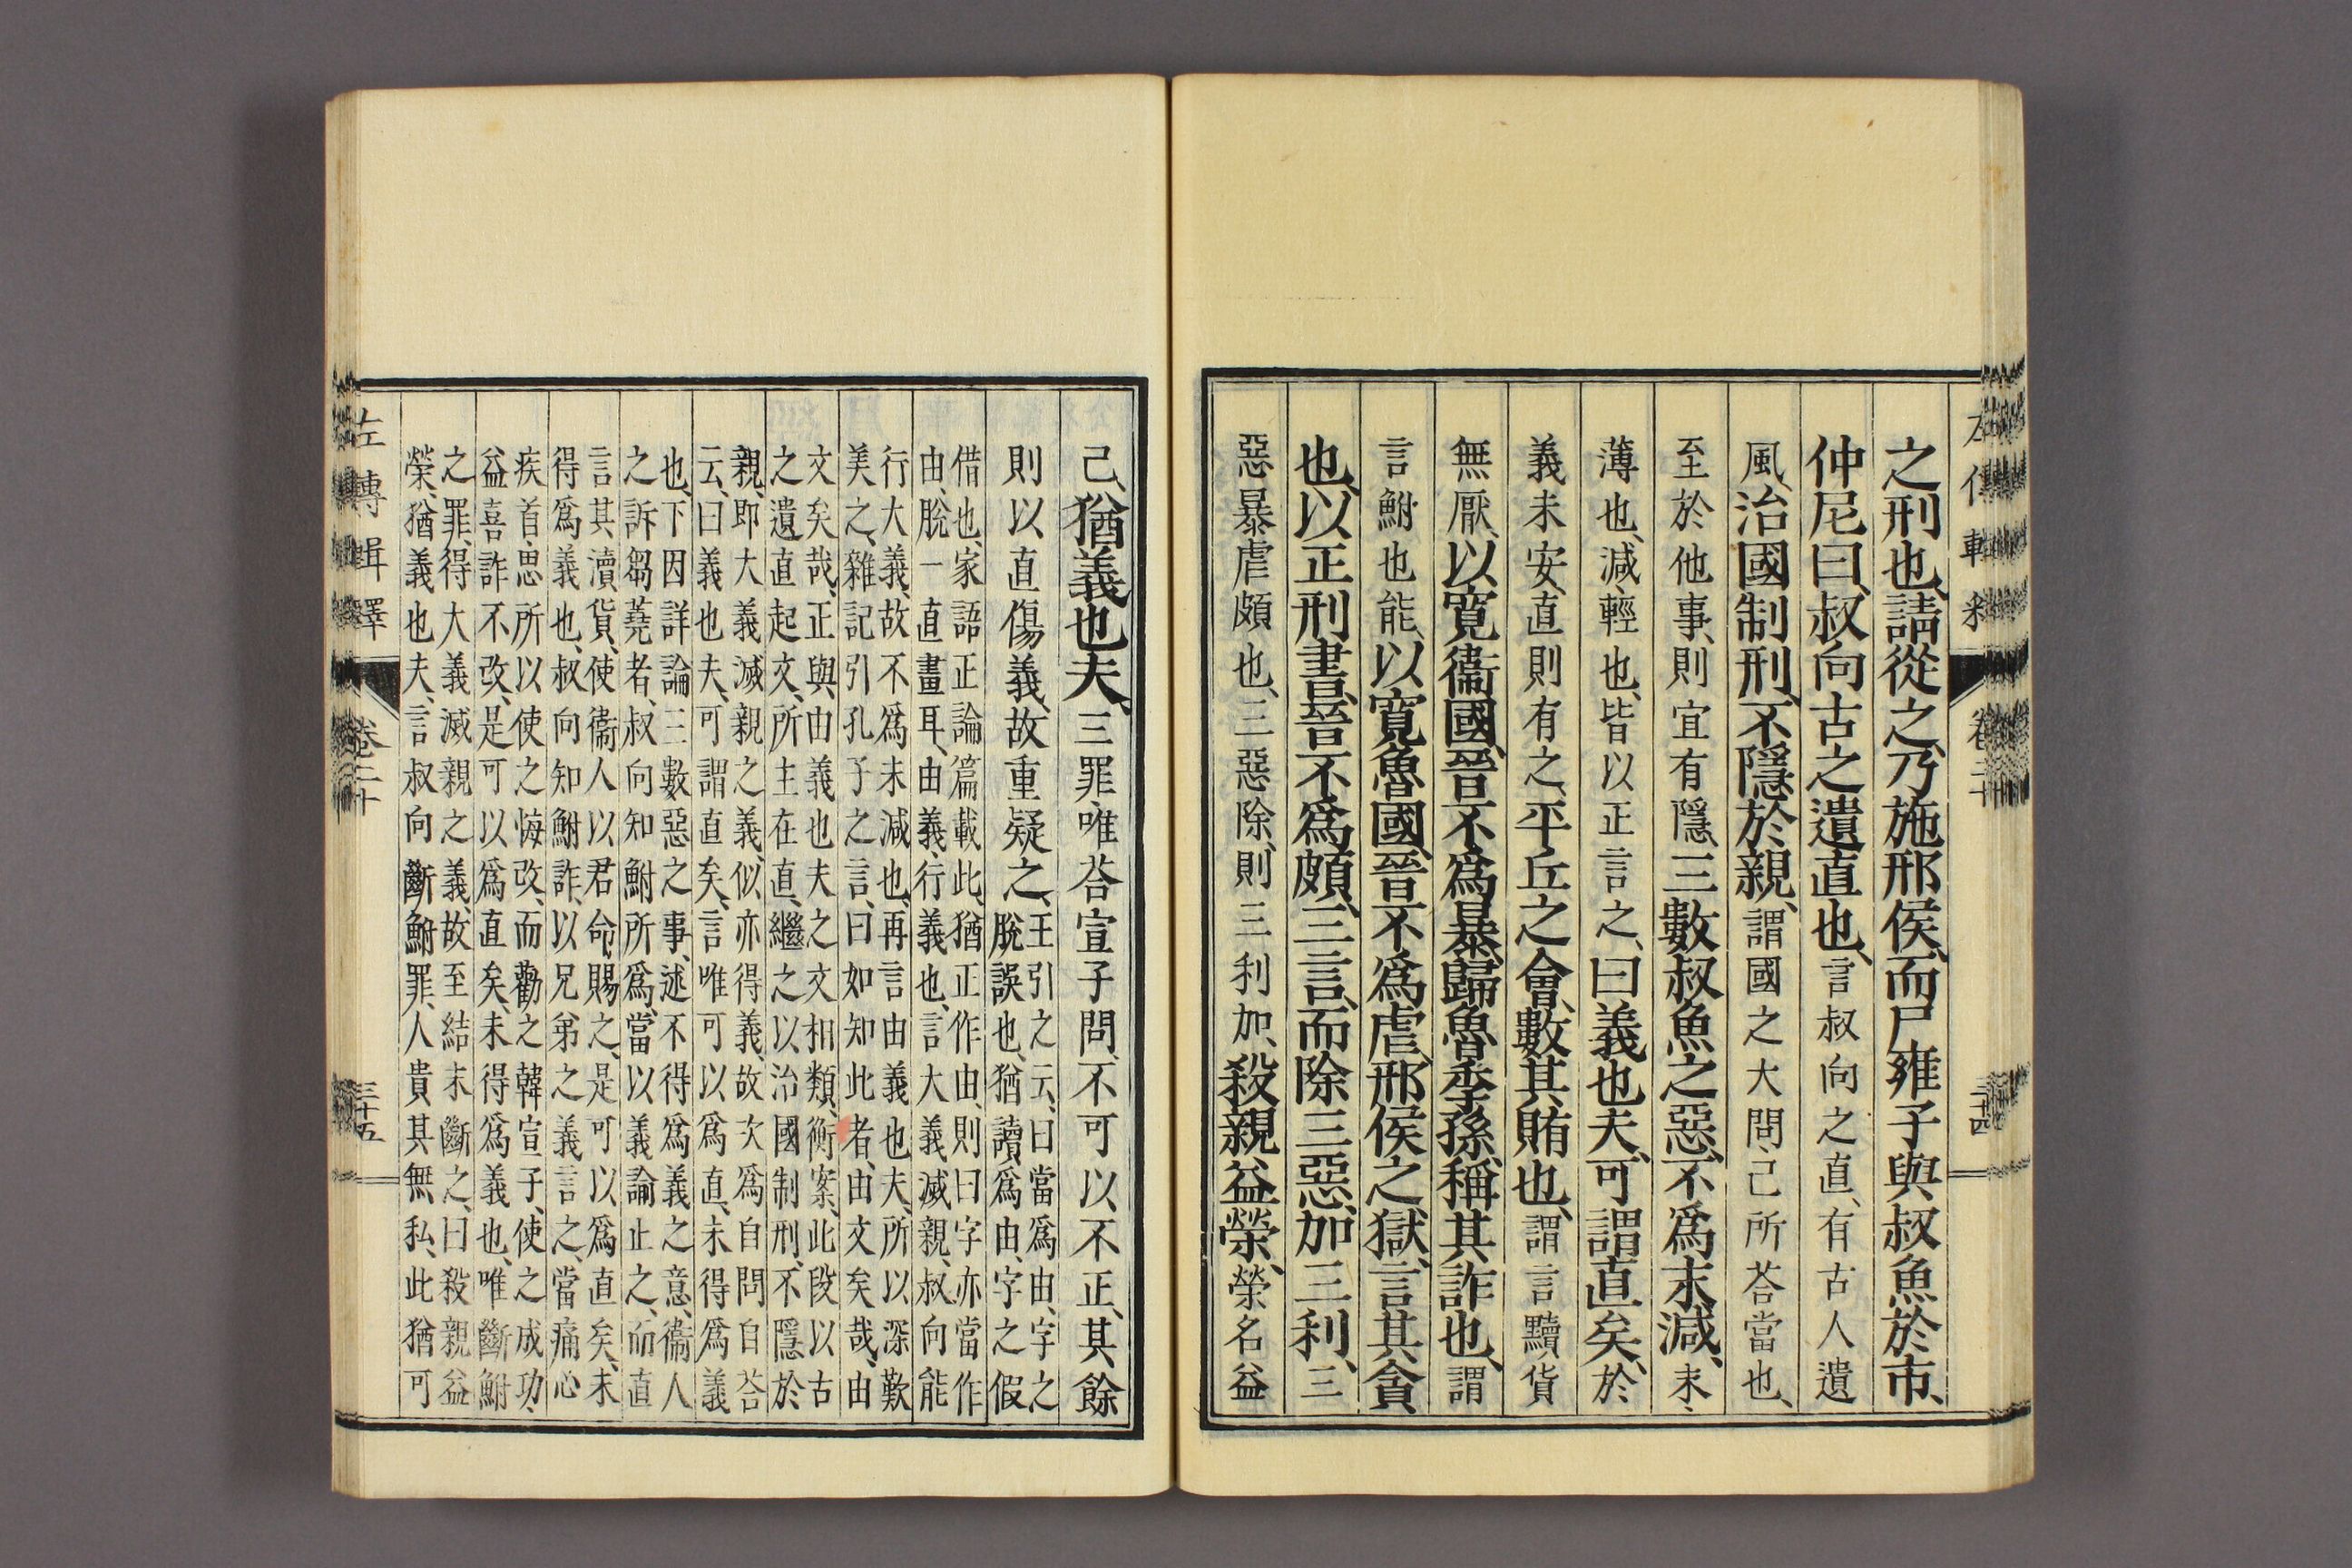 之刑也、請從之、乃施邢侯、而尸雍子與叔魚於市、
仲尼曰、叔向古之遺直也、言叔向之直、有古人遺
風、治國制刑、不隱於親、謂國之大問、己所荅當也、
至於他事、則宜有隱、三數叔魚之惡、不爲末減、末、
薄也、減、輕也、皆以正言之、曰義也夫、可謂直矣、於
義未安、直則有之、平丘之會、數其賄也、謂言黷貨
無厭、以寬衞國、晉不爲暴、歸魯季孫、稱其詐也、謂
言鮒也能、以寬魯國、晉不爲虐、邢侯之獄、言其貪
也、以正刑書、晉不爲頗、三言、而除三惡、加三利、三
惡、暴虐頗也、三惡除、則三利加、殺親益榮、榮名益
己、猶義也夫、三罪、唯荅宣子問、不可以不正、其餘
則以直傷義、故重疑之、
王引之云、曰當爲由、字之
脫誤也、猶讀爲由、字之假
借也、家語正論篇載此、猶正作由、則曰字亦當作
由、脫一直畫耳、由義、行義也、言大義滅親、叔向能
行大義、故不爲末減也、再言由義也夫、所以深歎
美之、雜記引孔子之言、曰如知此者、由文矣哉、由
文矣哉、正與由義也夫之文相類、衡案、此段以古
之遺直起文、所主在直、繼之以治國制刑、不隱於
親、即大義滅親之義、似亦得義、故次爲自問自荅
云、曰義也夫、可謂直矣、言唯可以爲直、未得爲義
也、下因詳論三數惡之事、述不得爲義之意、衞人
之訴芻蕘者、叔向知鮒所爲、當以義諭止之、而直
言其瀆貨、使衞人以君命賜之、是可以爲直矣、未
得爲義也、叔向知鮒詐、以兄弟之義言之、當痛心
疾首、思所以使之悔改、而勸之韓宣子、使之成功、
益喜詐不改、是可以爲直矣、未得爲義也、唯斷鮒
之罪、得大義滅親之義、故至結末斷之、曰殺親益
榮、猶義也夫、言叔向斷鮒罪、人貴其無私、此猶可
左傳輯釋
卷二十
三十五